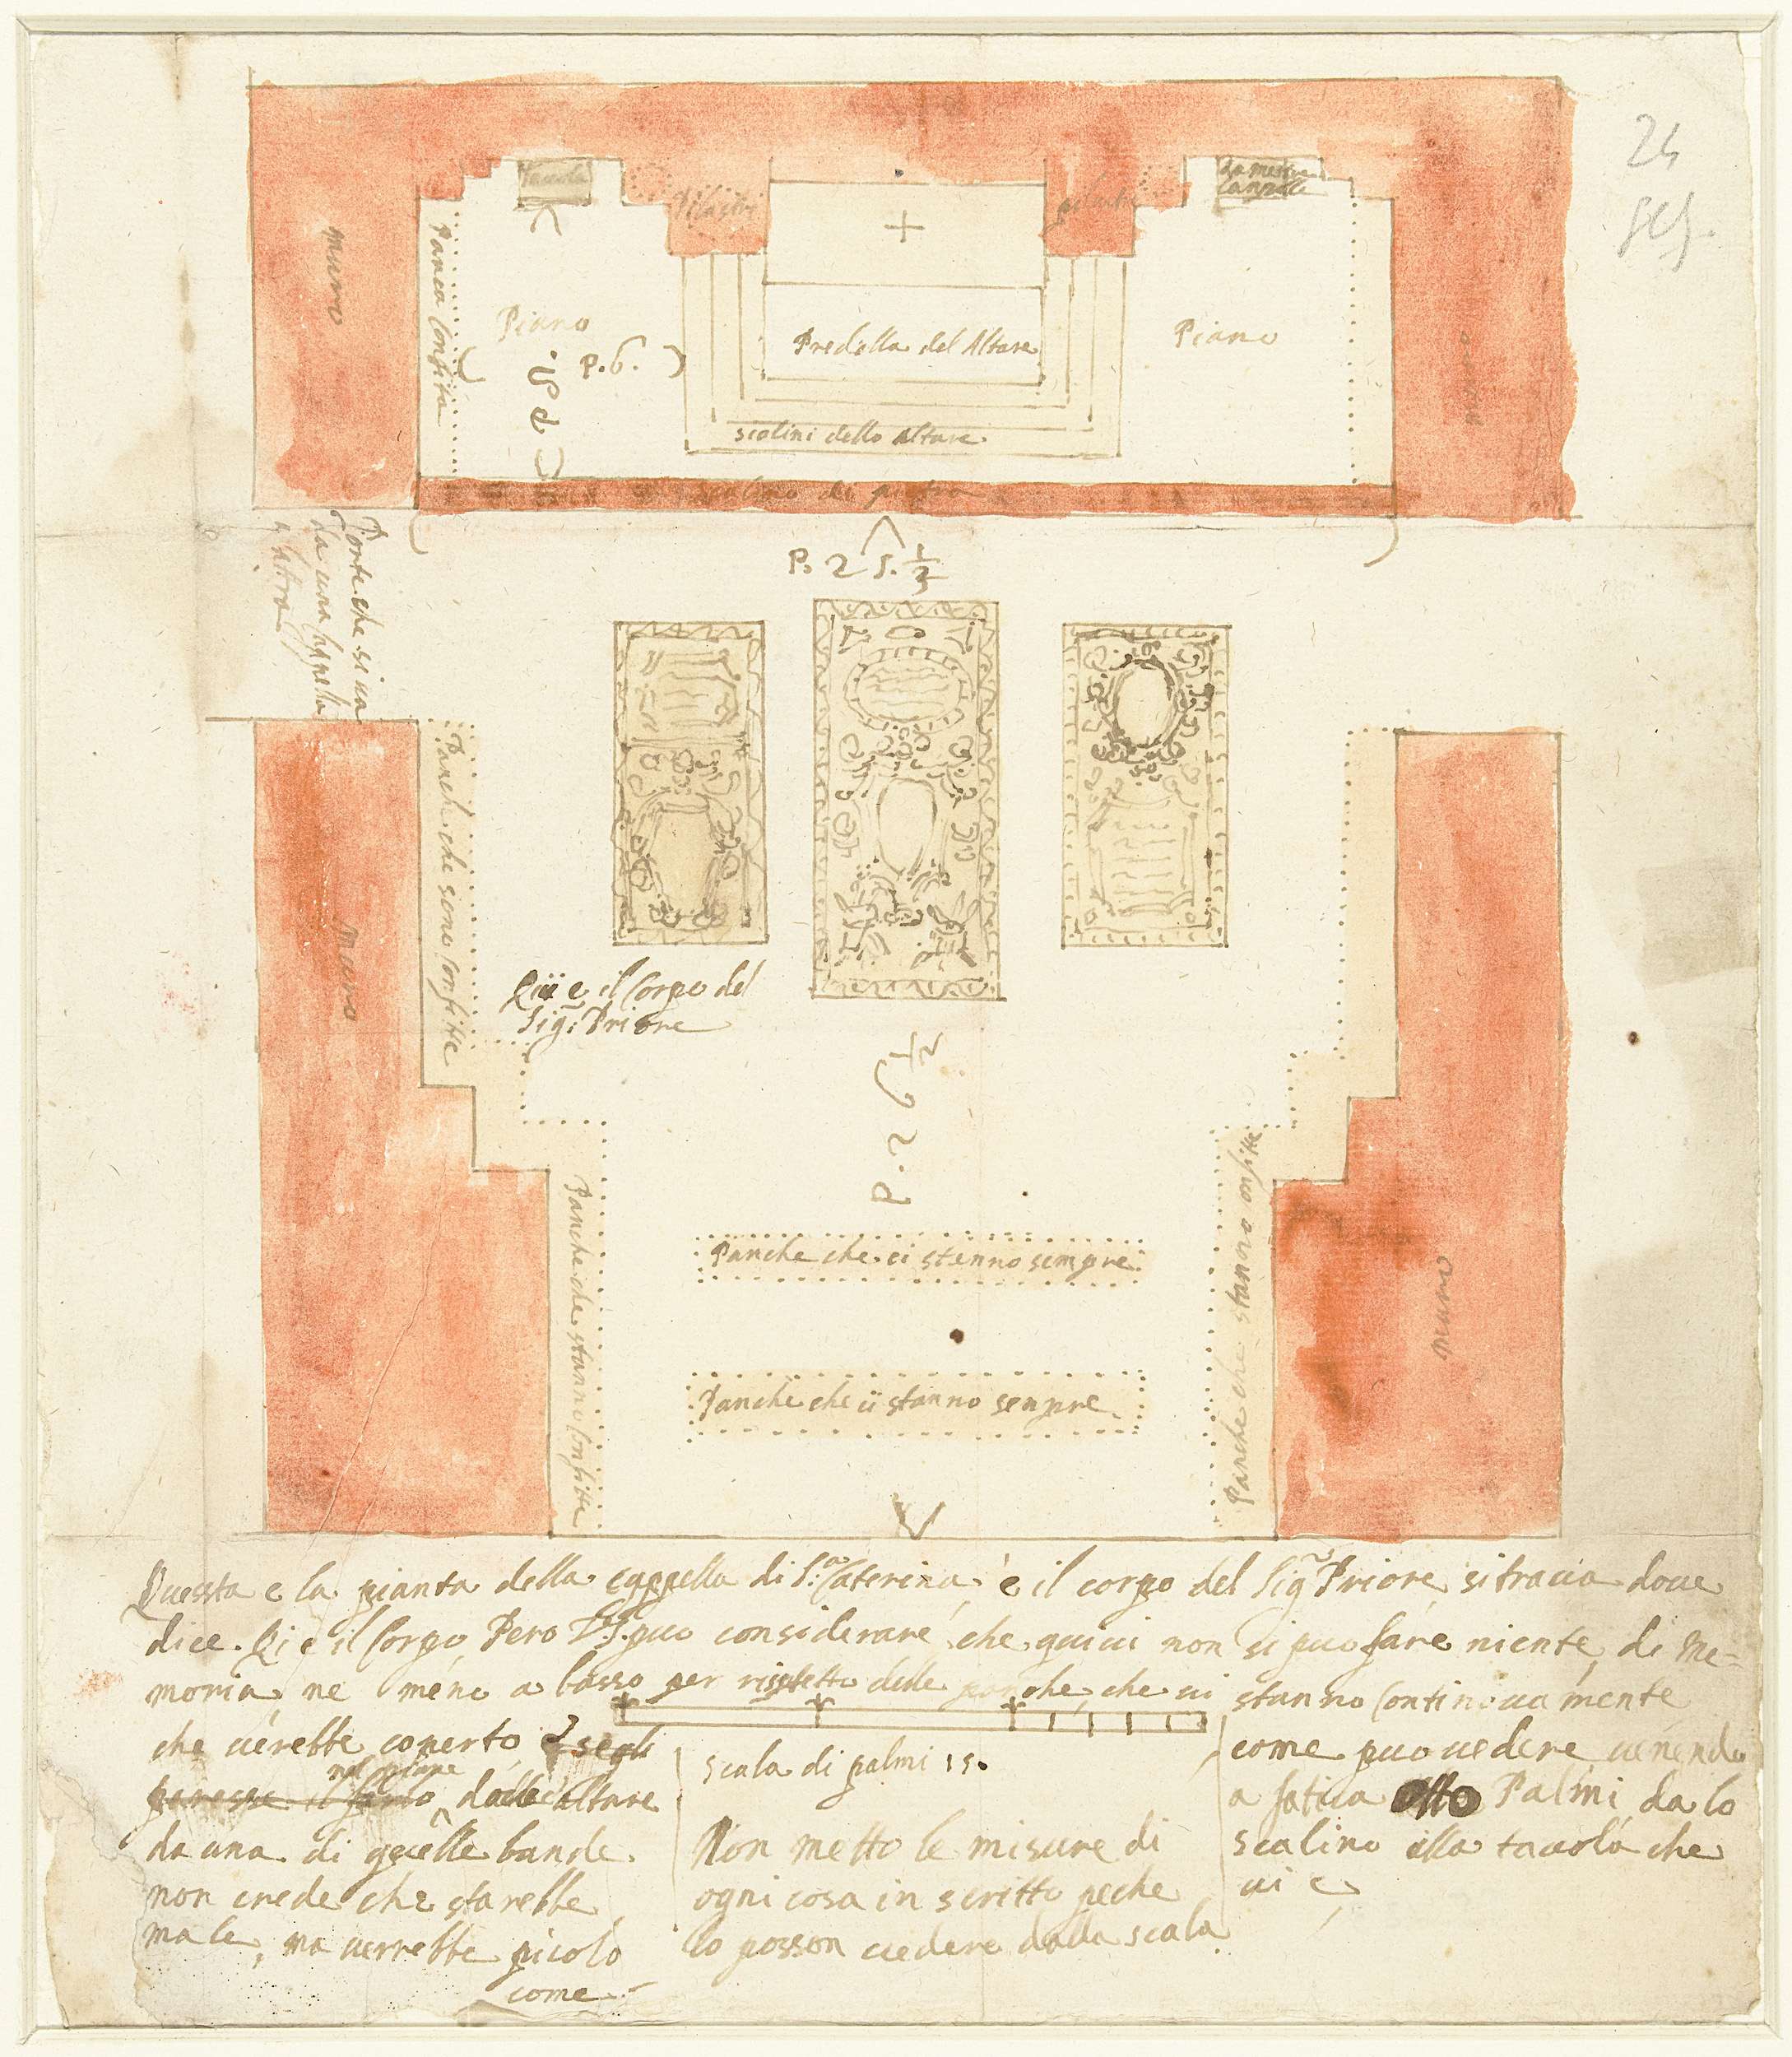 24
muro
Panca Confitta
Tavola
Pilastri
pilastri
da mettere
Piano
P. 6.
P 5.
Predella del Altare
scalini dello Altare
Piano
muro
scalino di pietra
Porte che si va
da una Cappella
a l'altra
P. 2 S. 1/2
Panche che sono Confitte
muro
Qui e il Corpo del
Sig: Priore
P. 2 6 1/2
Panche che stanno Confitte
Panche che ci stanno sempre
Panche che ci stanno sempre
Panche che stanno Confitte
muro
Questa e la pianta della cappella di S.a Caterina, è il corpo del Sig Priore, si trova dove
dice. Qi e il Corpo, Pero V.S. puo considerare, che quivi non si puo fare niente, di Me=
moria, ne meno a basso per rispetto delle panche, che vi stanno Continovamente
che verebbe coperto, E segli
nel piano
paresse il farlo dello altare
da una di quelle bande.
non crede che starebbe
male, ma verrebbe picolo
come
scala di palmi 15.
Non metto le misure di
ogni cosa in scritto peche
lo posson vedere dalla scala
come puo vedere, venendo
a fatica otto Palmi, da lo
scalino alla tavola che
vi e